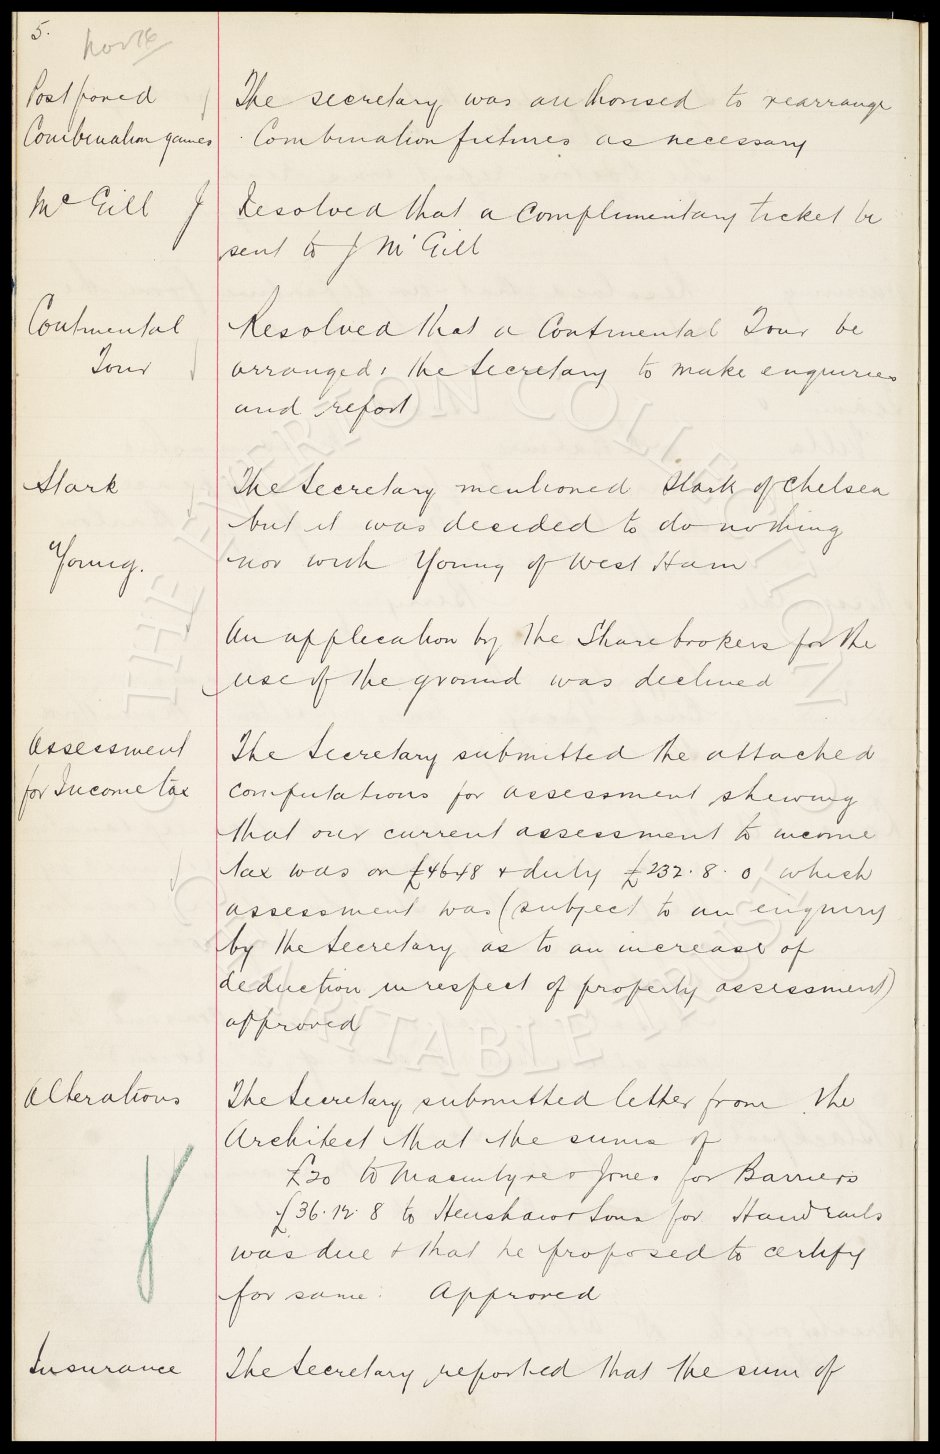 5.
Nov 16
Postponed
Combination games
The secretary was authorised to rearrange
Combination fixtures as necessary
McGill J
Resolved that a complimentary ticket be
sent to J McGill
Continental
Tour
Resolved that a Continental Tour be
arranged, the Secretary to make enquiries
and report
Stark
The Secretary mentioned Stark of Chelsea
but it was decided to do nothing
Young.
nor with Young of West Ham
An application by the Sharebrokers for the
use of the ground was declined
Assessment
for Income tax
The Secretary submitted the attached
computations for assessment shewing
that our current assessment to income
tax was on £4648 + duty £232.8.0 which
assessment was (subject to an enquiry
by the Secretary as to an increase of
deduction in respect of property assessment)
approved
Alterations
The Secretary submitted letter from the
Architect that the sums of
£20 to Macintyre & Jones for Barriers
£36.12.8 to Henshaw & Sons for Handrails
was due + that he proposed to certify
for same. Approved
Insurance
The Secretary reported that the sum of
THE EVERTON COLLECTION
CHARITABLE TRUST